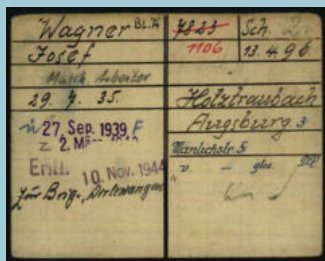 Wagner Bl.A
Josef
Masch. Arbeiter
29. 4. 35.
27. Sep. 1939 F
z 2. Mä
Entl. 10. Nov. 1944
Zur Brig. Dirlewanger
7823 Sch.
1106 13. 4. 96.
Holztraubach
Augsburg 3
Manlichstr 5
" v. - glas.